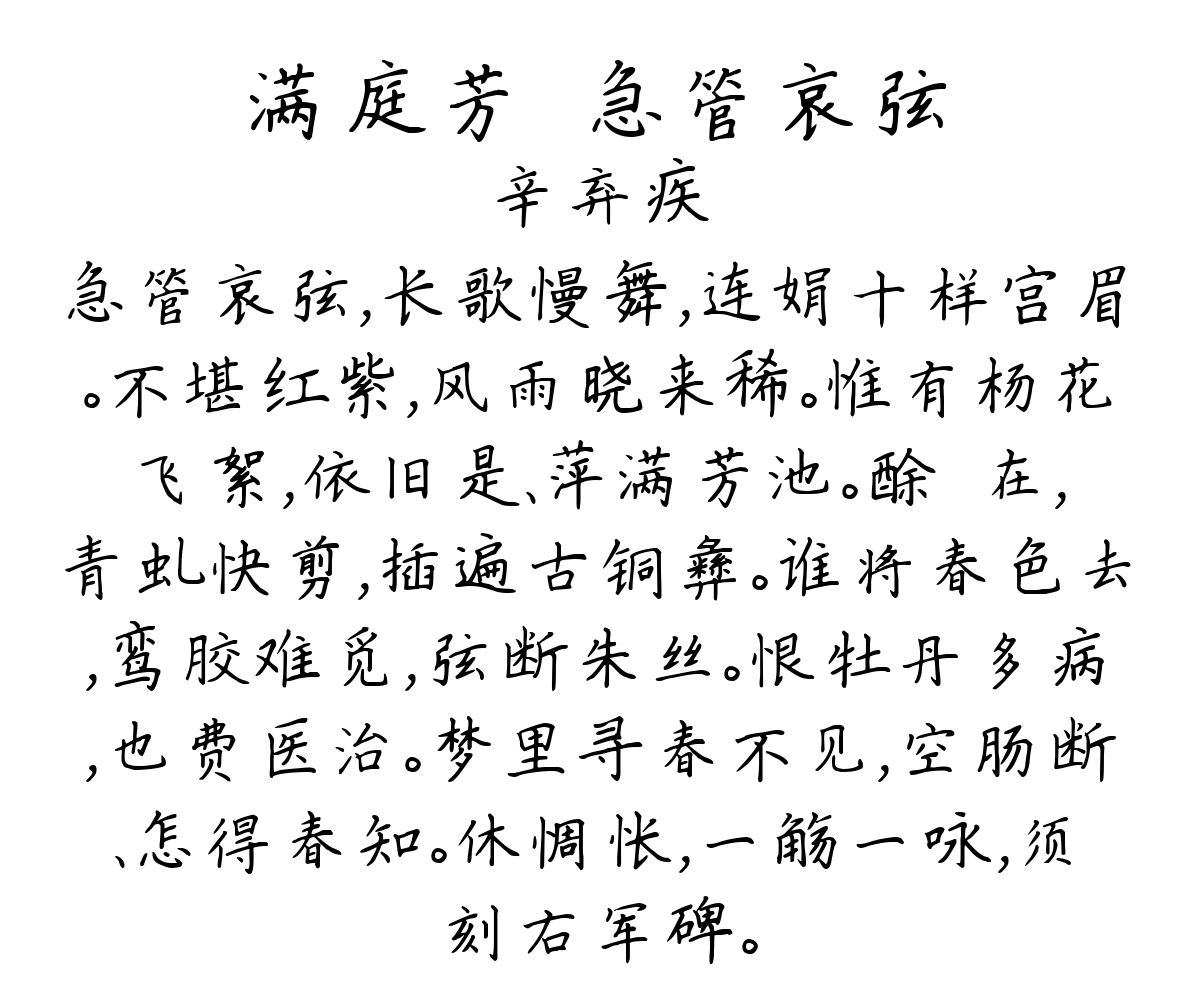 满庭芳 急管哀弦
辛弃疾
急管哀弦,长歌慢舞,连娟十样宫眉
。不堪红紫,风雨晓来稀。惟有杨花
飞絮,依旧是、萍满芳池。酴 在,
青虬快剪,插遍古铜彝。谁将春色去
,鸾胶难觅,弦断朱丝。恨牡丹多病
,也费医治。梦里寻春不见,空肠断
、怎得春知。休惆怅,一觞一咏,须
刻右军碑。